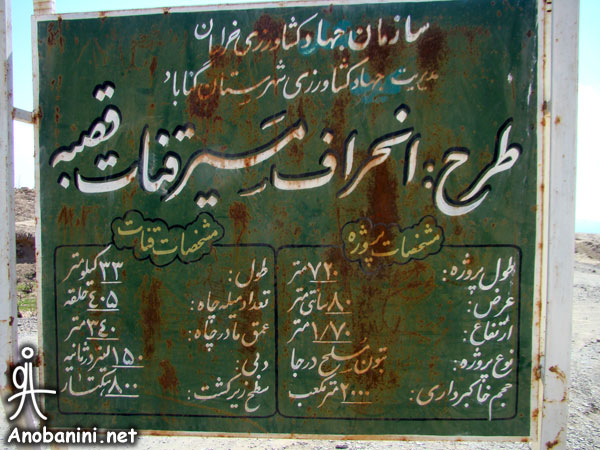 سازمان جهاد کشاورزی خراسان
مدیریت جهاد کشاورزی شهرستان گناباد
طرح: انحراف مسیر قنات قصبه
مشخصات پروژه
طول پروژه: ۷۲۰ متر
عرض: ۸۰ سانتی متر
ارتفاع: ۱/۷۰ متر
نوع پروژه: بتون مسلح درجا
حجم خاکبرداری: ۲۰۰۰ متر مکعب
مشخصات قنات
طول: ۳۳ کیلومتر
تعداد میله چاه: ۴۰۵ حلقه
عمق مادر چاه: ۳۴۰ متر
دبی: ۱۵۰ لیتر در ثانیه
سطح زیر کشت: ۸۰۰ هکتار
Anobanini.net